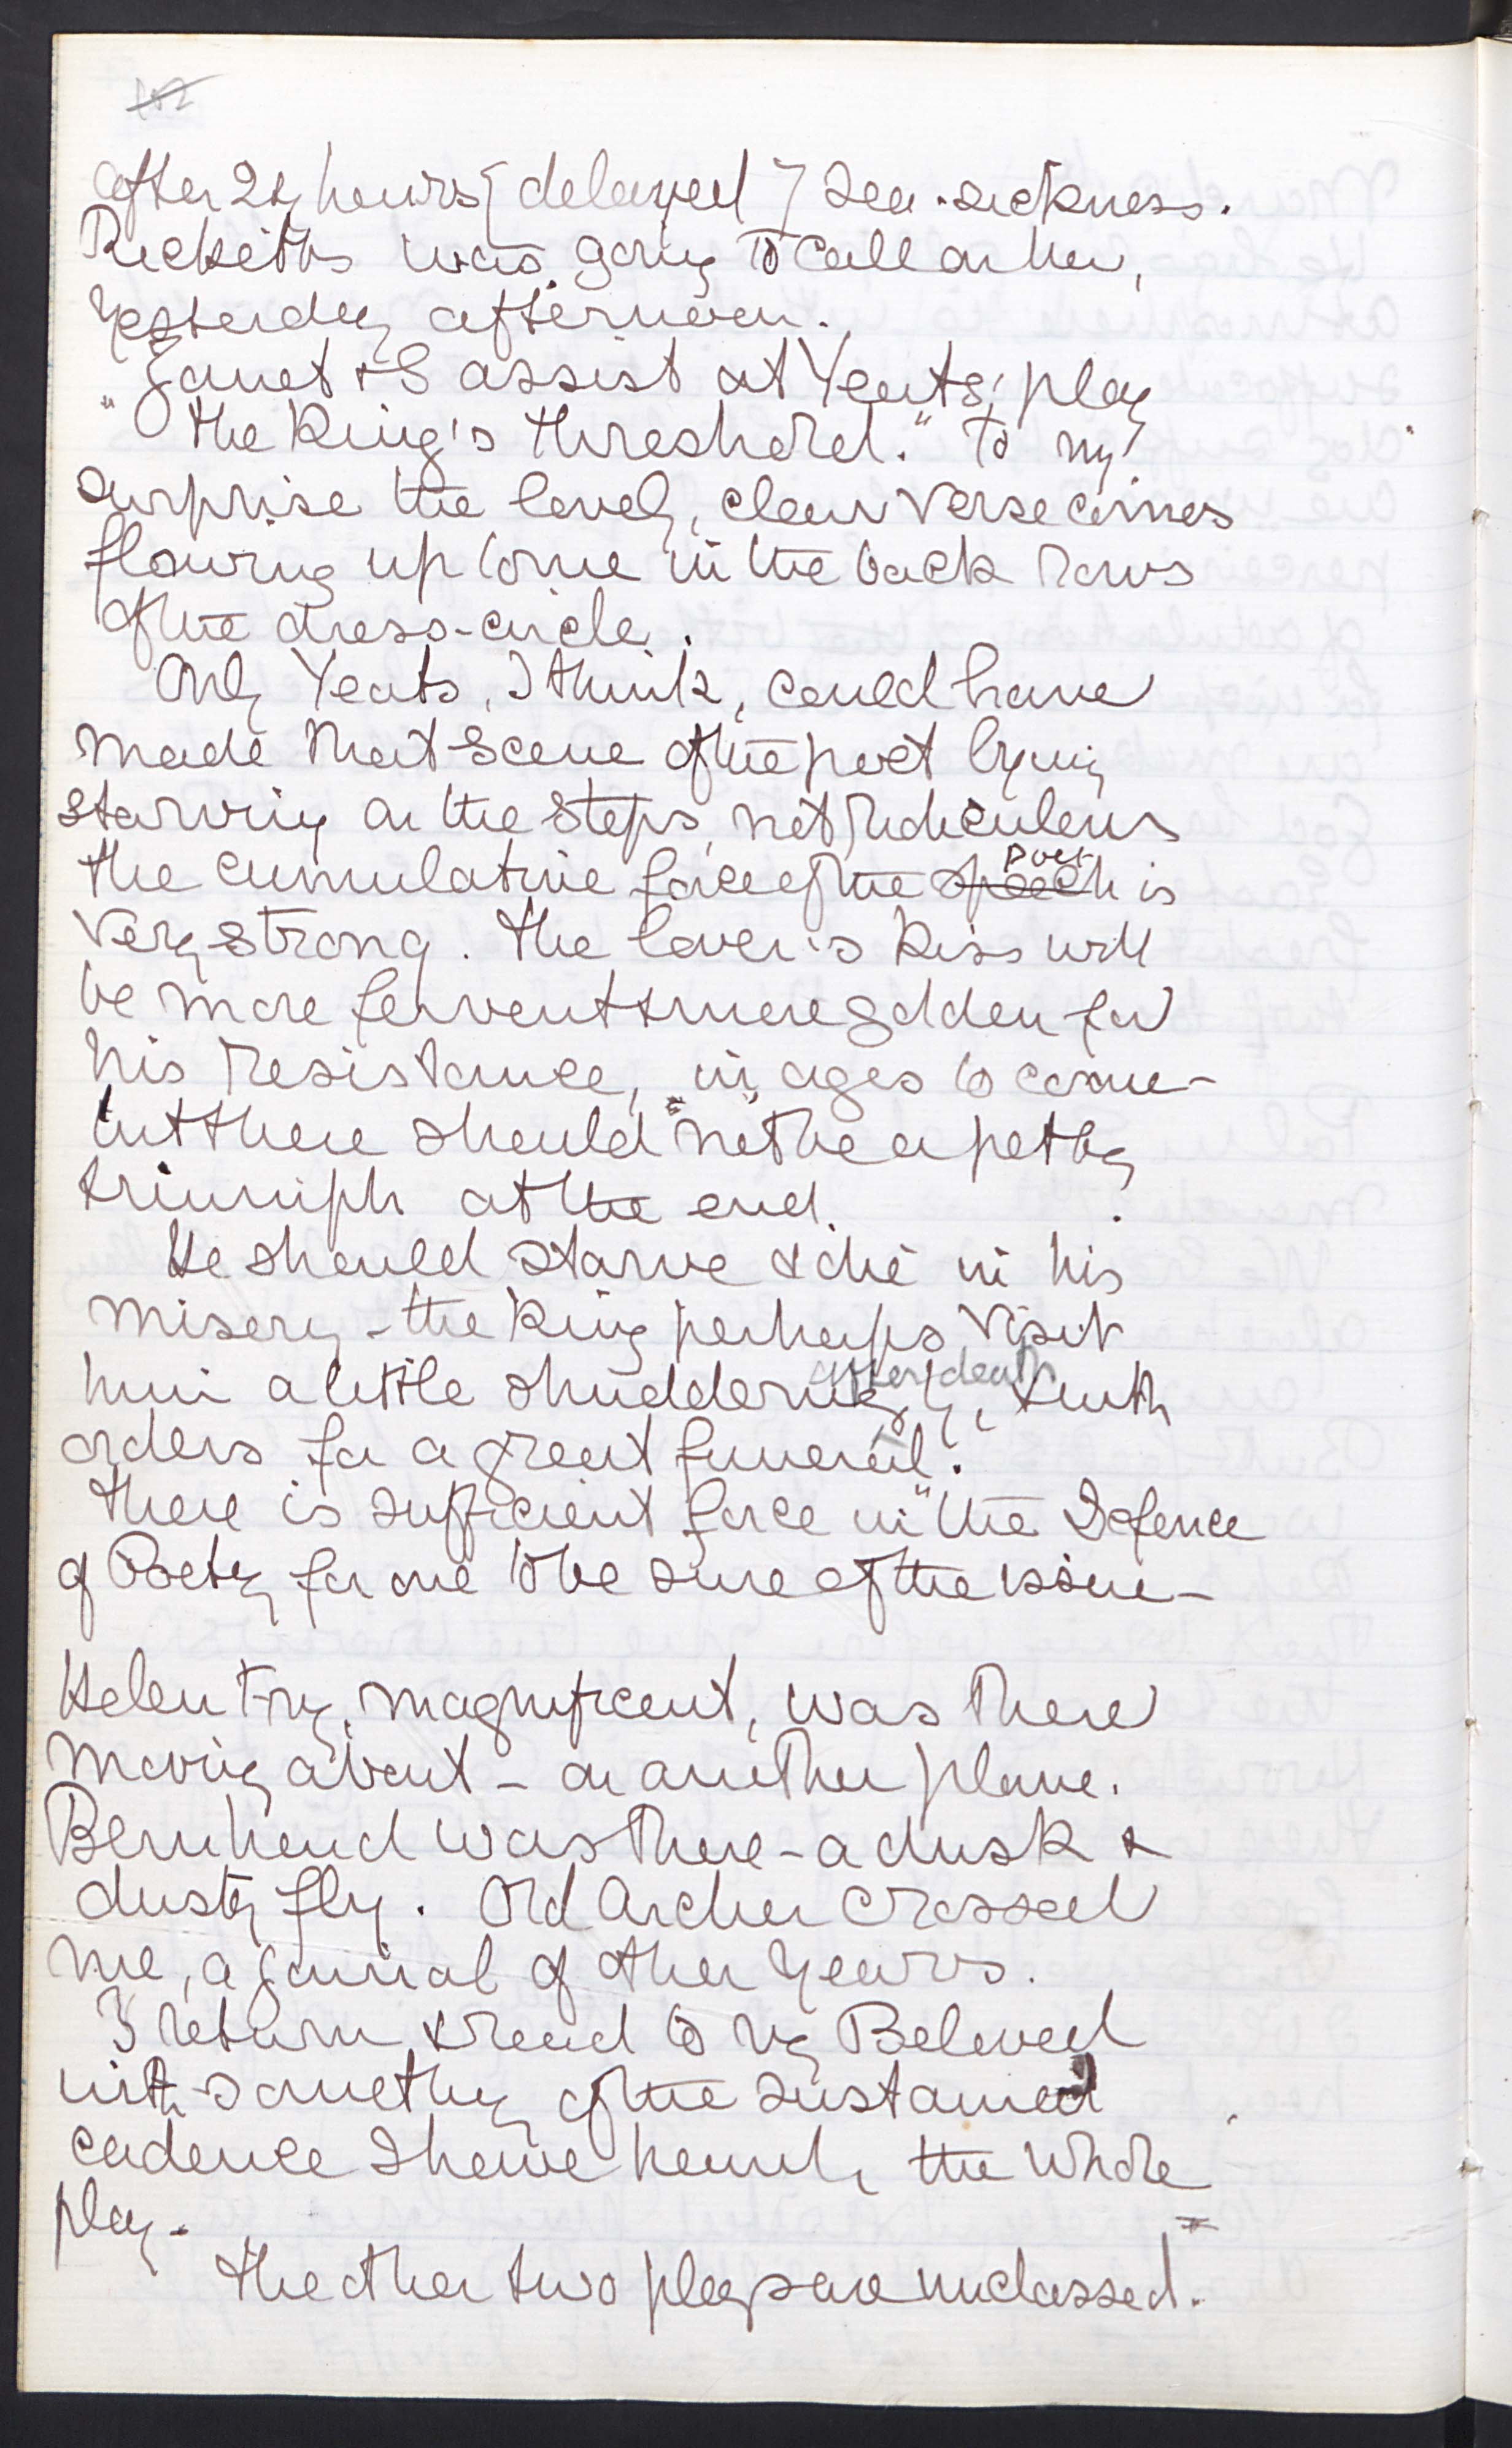 after 24 hours [delayed] sea-sickness.
Ricketts was going to call on her,
yesterday afternoon.
Janet & I assist at Yeats' play
"The King's threshold." To my
surprise the lovely, clear verse comes
flowing up to me in the back rows
of the dress-circle.
Only Yeats, I think, could have
made that scene of the poet lying
starving on the steps, not ridiculous
the cumulative force of the speech is
very strong. The lover's kiss will
be more fervent & more golden for
his resistance, in ages to come -
but there should not be a petty
triumph at the end.
He should starve & die in his
misery - the King perhaps visit
after death
him a little shudderingly, & with
orders for a great funeral.
There is sufficient force in "the Defence
of Poetry for one to be sure of the issue -
Helen Fry, magnificent, was there
moving about - on another plane.
Bernhard was there - a dusk &
dusty fly. Old Archer crossed
me, a journal of other years.
I return & read to my Beloved
with something of the sustained
cadence I have heard, the whole
play.
The other two plays are unclassed.